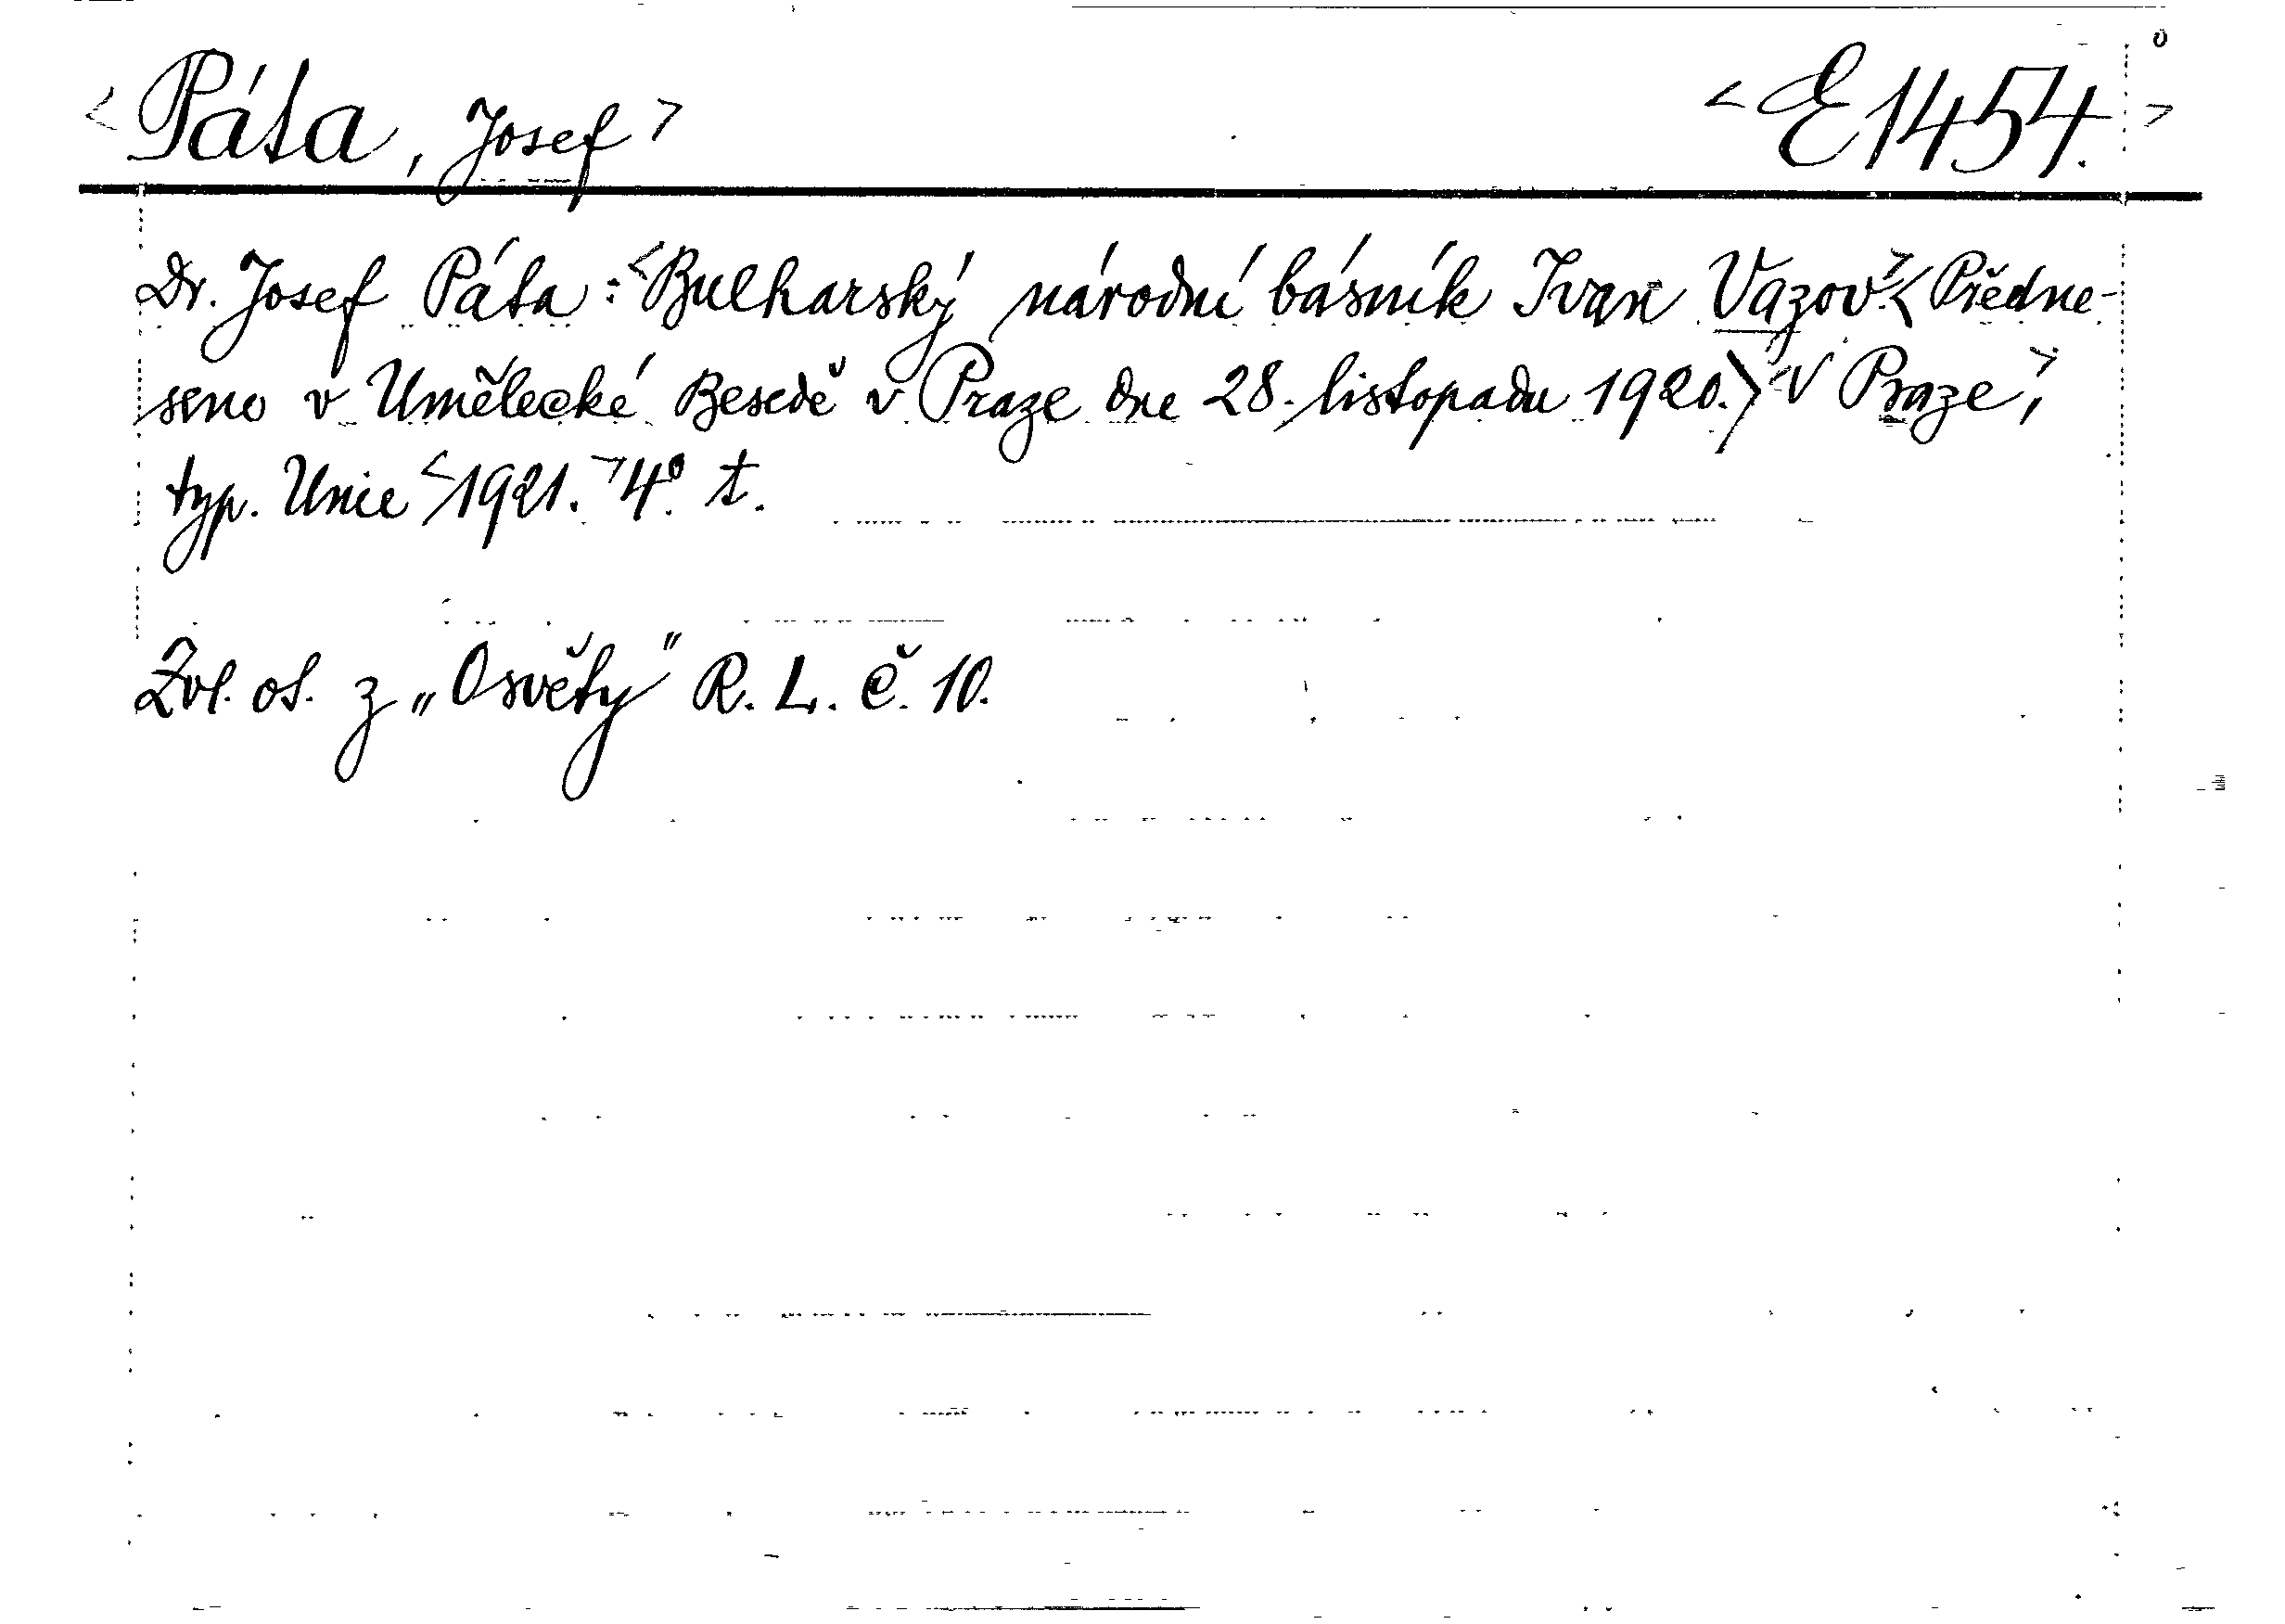 <Páta, Josef> <E1454.>
Dr. Josef Páta: <Bulharský národní básník Ivan Vazov.> <Předne-
seno v Umělecké Besedě v Praze dne 28. listopadu 1920.> <V Praze,>
typ. Unie <1921.> 4° t.
Zvl. ot. z „Osvěty" R. L. č. 10.